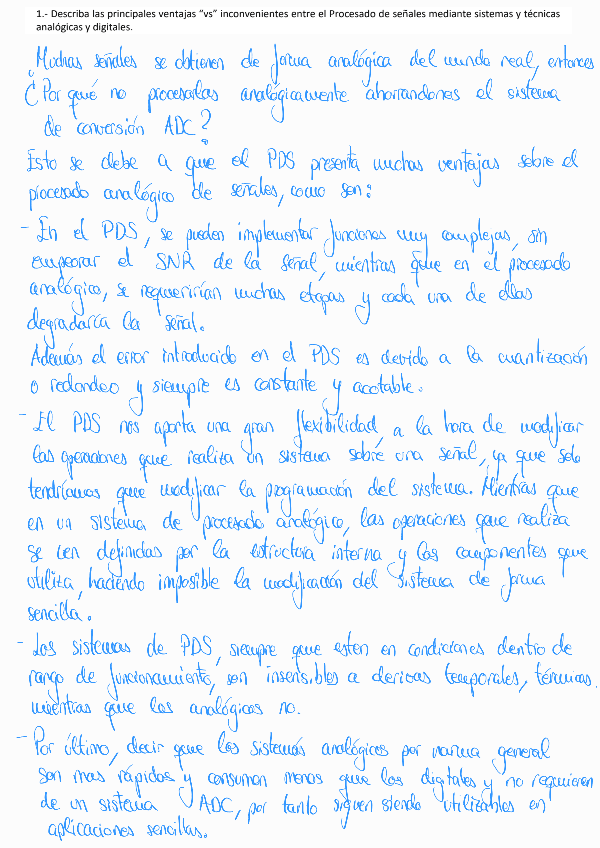 1.- Describa las principales ventajas "vs" inconvenientes entre el Procesado de señales mediante sistemas y técnicas
analógicas y digitales.
Muchas señales se obtienen de forma analógica del mundo real, entonces
¿Por qué no procesarlas analógicamente ahorrandonos el sistema
de conversión ADC?
Esto se debe a que el PDS presenta muchas ventajas sobre el
procesado analógico de señales, como son:
- En el PDS, se pueden implementar funciones muy complejas, sin
empeorar el SNR de la señal, mientras que en el procesado
analógico, se requerirían muchas etapas y cada una de ellas
degradaría la señal.
Además el error introducido en el PDS es devido a la cuantización
o redondeo y siempre es constante y acotable.
- El PDS nos aporta una gran flexibilidad, a la hora de modificar
las operaciones que realiza un sistema sobre una señal, ya que solo
tendríamos que modificar la programación del sistema. Mientras que
en un sistema de procesado analógico, las operaciones que realiza
se ven definidas por la estructura interna y los componentes que
utiliza, haciendo imposible la modificación del sistema de forma
sencilla.
- Los sistemas de PDS, siempre que esten en condiciones dentro de
rango de funcionamiento, son insensibles a derivas temporales, térmicas.
mientras que los analógicos no.
- Por último, decir que los sistemas analógicos por norma general
son mas rápidos y consumen menos que los digitales y no requieren
de un sistema ADC, por tanto siguen siendo utilizables en
aplicaciones sencillas.